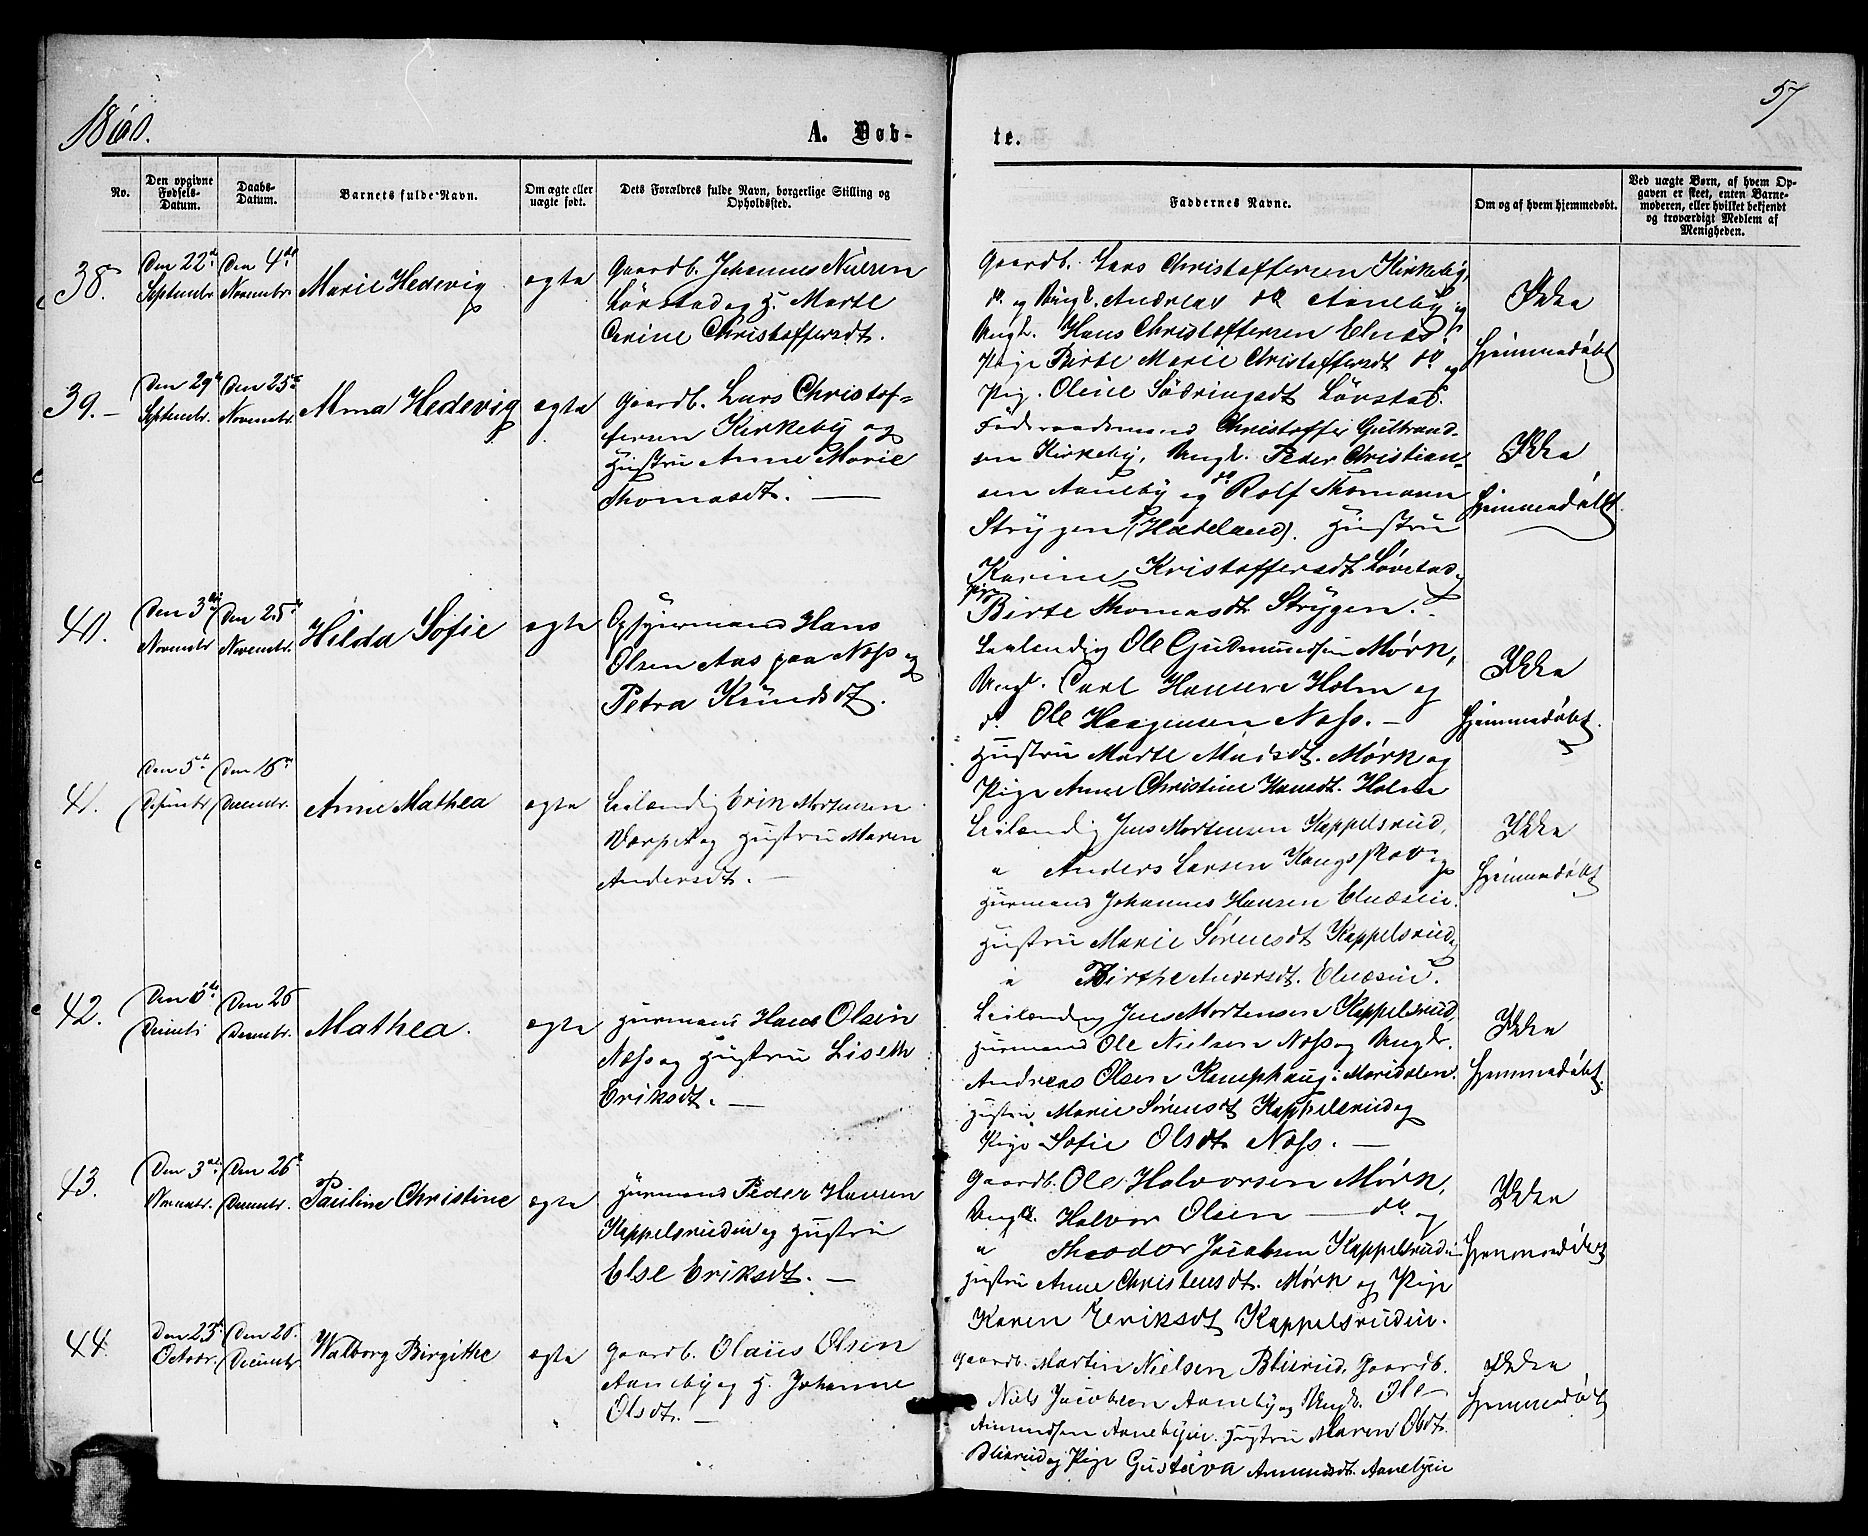 1860.
A. Døb-
te.
57
No.
Den opgivne Fødsels-Datum.
Daabs-Datum.
Barnets fulde Navn.
Om ægte eller uægte født.
Dets Forældres fulde Navn, borgerlige Stilling og Opholdssted.
Faddernes Navne.
Om og af hvem hjemmedøbt.
Ved uægte Børn, af hvem Opgaven er skeet, enten Barnemoderen, eller hvilket bekjendt og troværdigt Medlem af Menigheden.
38.
Den 22de
Septembr
Den 4de
Novembr.
Marie Hedevig
ægte
Gaardb. Johannes Nilsen
Lövstad og H. Marte
Carine Christoffersdt.
Gaardb. Lars Christoffersen Kirkeby,
do. og Ungk. Andreas do Aaneby og
Ungk. Hans Christoffersen Elnæs.
Pige Birte Marie Christoffersdt do. og
Pig. Oline Södringsdt Lövstad.
Ikke
hjemmedøbt
39.
Den 29de
Septembr.
Den 25de
Novembr.
Alma Hedevig
ægte
Gaardb. Lars Christof-
fersen Kirkeby og
Hustru Anne Marie
Thomasdt.
Föderaadsmand Christoffer Gulbrand-
sen Kirkeby, Ungk. Peder Christian-
sen Aaneby og do Rolf Thomasen
Strygen (Hadeland). Hustru
Karine Kristoffersdt Lövstad
Pige Birte Thomasdt Strygen.
Ikke
hjemmedøbt
40.
Den 3die
Novembr
Den 25de
Novembr.
Hilda Sofie
ægte
Opsynsmand Hans
Olsen Aas paa Næss og
Petra Knudsdt.
Leilending Ole Gudmundsen Mörk,
Ungk. Carl Hansen Holm og
do. Ole Haagensen Næss.
Hustru Marte Madsdt. Mörk og
Pige Anne Christine Hansdt. Holm
Ikke
hjemmedøbt.
41.
Den 5te
Den 16de
Decembr.
Anne Mathea
ægte
Leilending Erik Mortensen
Varpet og Hustru Maren
Andersdt.
Leilending Jens Mortensen Kappelsrud,
" Anders Larsen Kongsskov og
Husmand Johannes Hansen Elnæseie.
Hustru Marie Sörensdt Kappelsrud
" Birthe Andersdt. Elnæseie.
Ikke
hjemmedøbt
42.
Den 6te
Decembr
Den 26
Decembr.
Mathea.
ægte
Husmand Hans Olsen
Næss og Hustru Liseth
Eriksdt.
Leilending Jens Mortensen Kappelsrud,
Husmand Ole Nielsen Næss og Ungk.
Andreas Olsen Kamphaug i Maridalen.
Hustru Marie Sörensdt Kappelsrud og
Pige Sofie Olsdt Næss.
Ikke
hjemmedøbt.
43.
Den 3die
Novembr.
Den 26de
Decembr.
Pauline Christine
ægte
Husmand Peder Hansen
Kappelsrudeie og Hustru
Else Eriksdt.
Gaardb. Ole Halvorsen Mörk,
Ungk. Halvor Olsen — do og
" Theodor Jacobsen Kappelsrudeie
Hustru Anne Christensdt. Mörk og Pige
Karen Eriksdt Kappelsrudeie.
Ikke
hjemmedøbt
44.
Den 23de
Octobr.
Den 26.
Decembr
Walborg Birgithe
ægte
Gaardb. Olaus Olsen
Aaneby og H. Johanne
Olsdt.
Gaardb. Martin Nielsen Bliksrud, Gaardb.
Niels Jacobsen Aaneby og Ungk. Ole
Amundsen Aanebyeie. Hustru Maren Olsdt.
Bliksrud og Pige Gustava Amundsdt. Aanebyeie
Ikke
hjemmedøbt